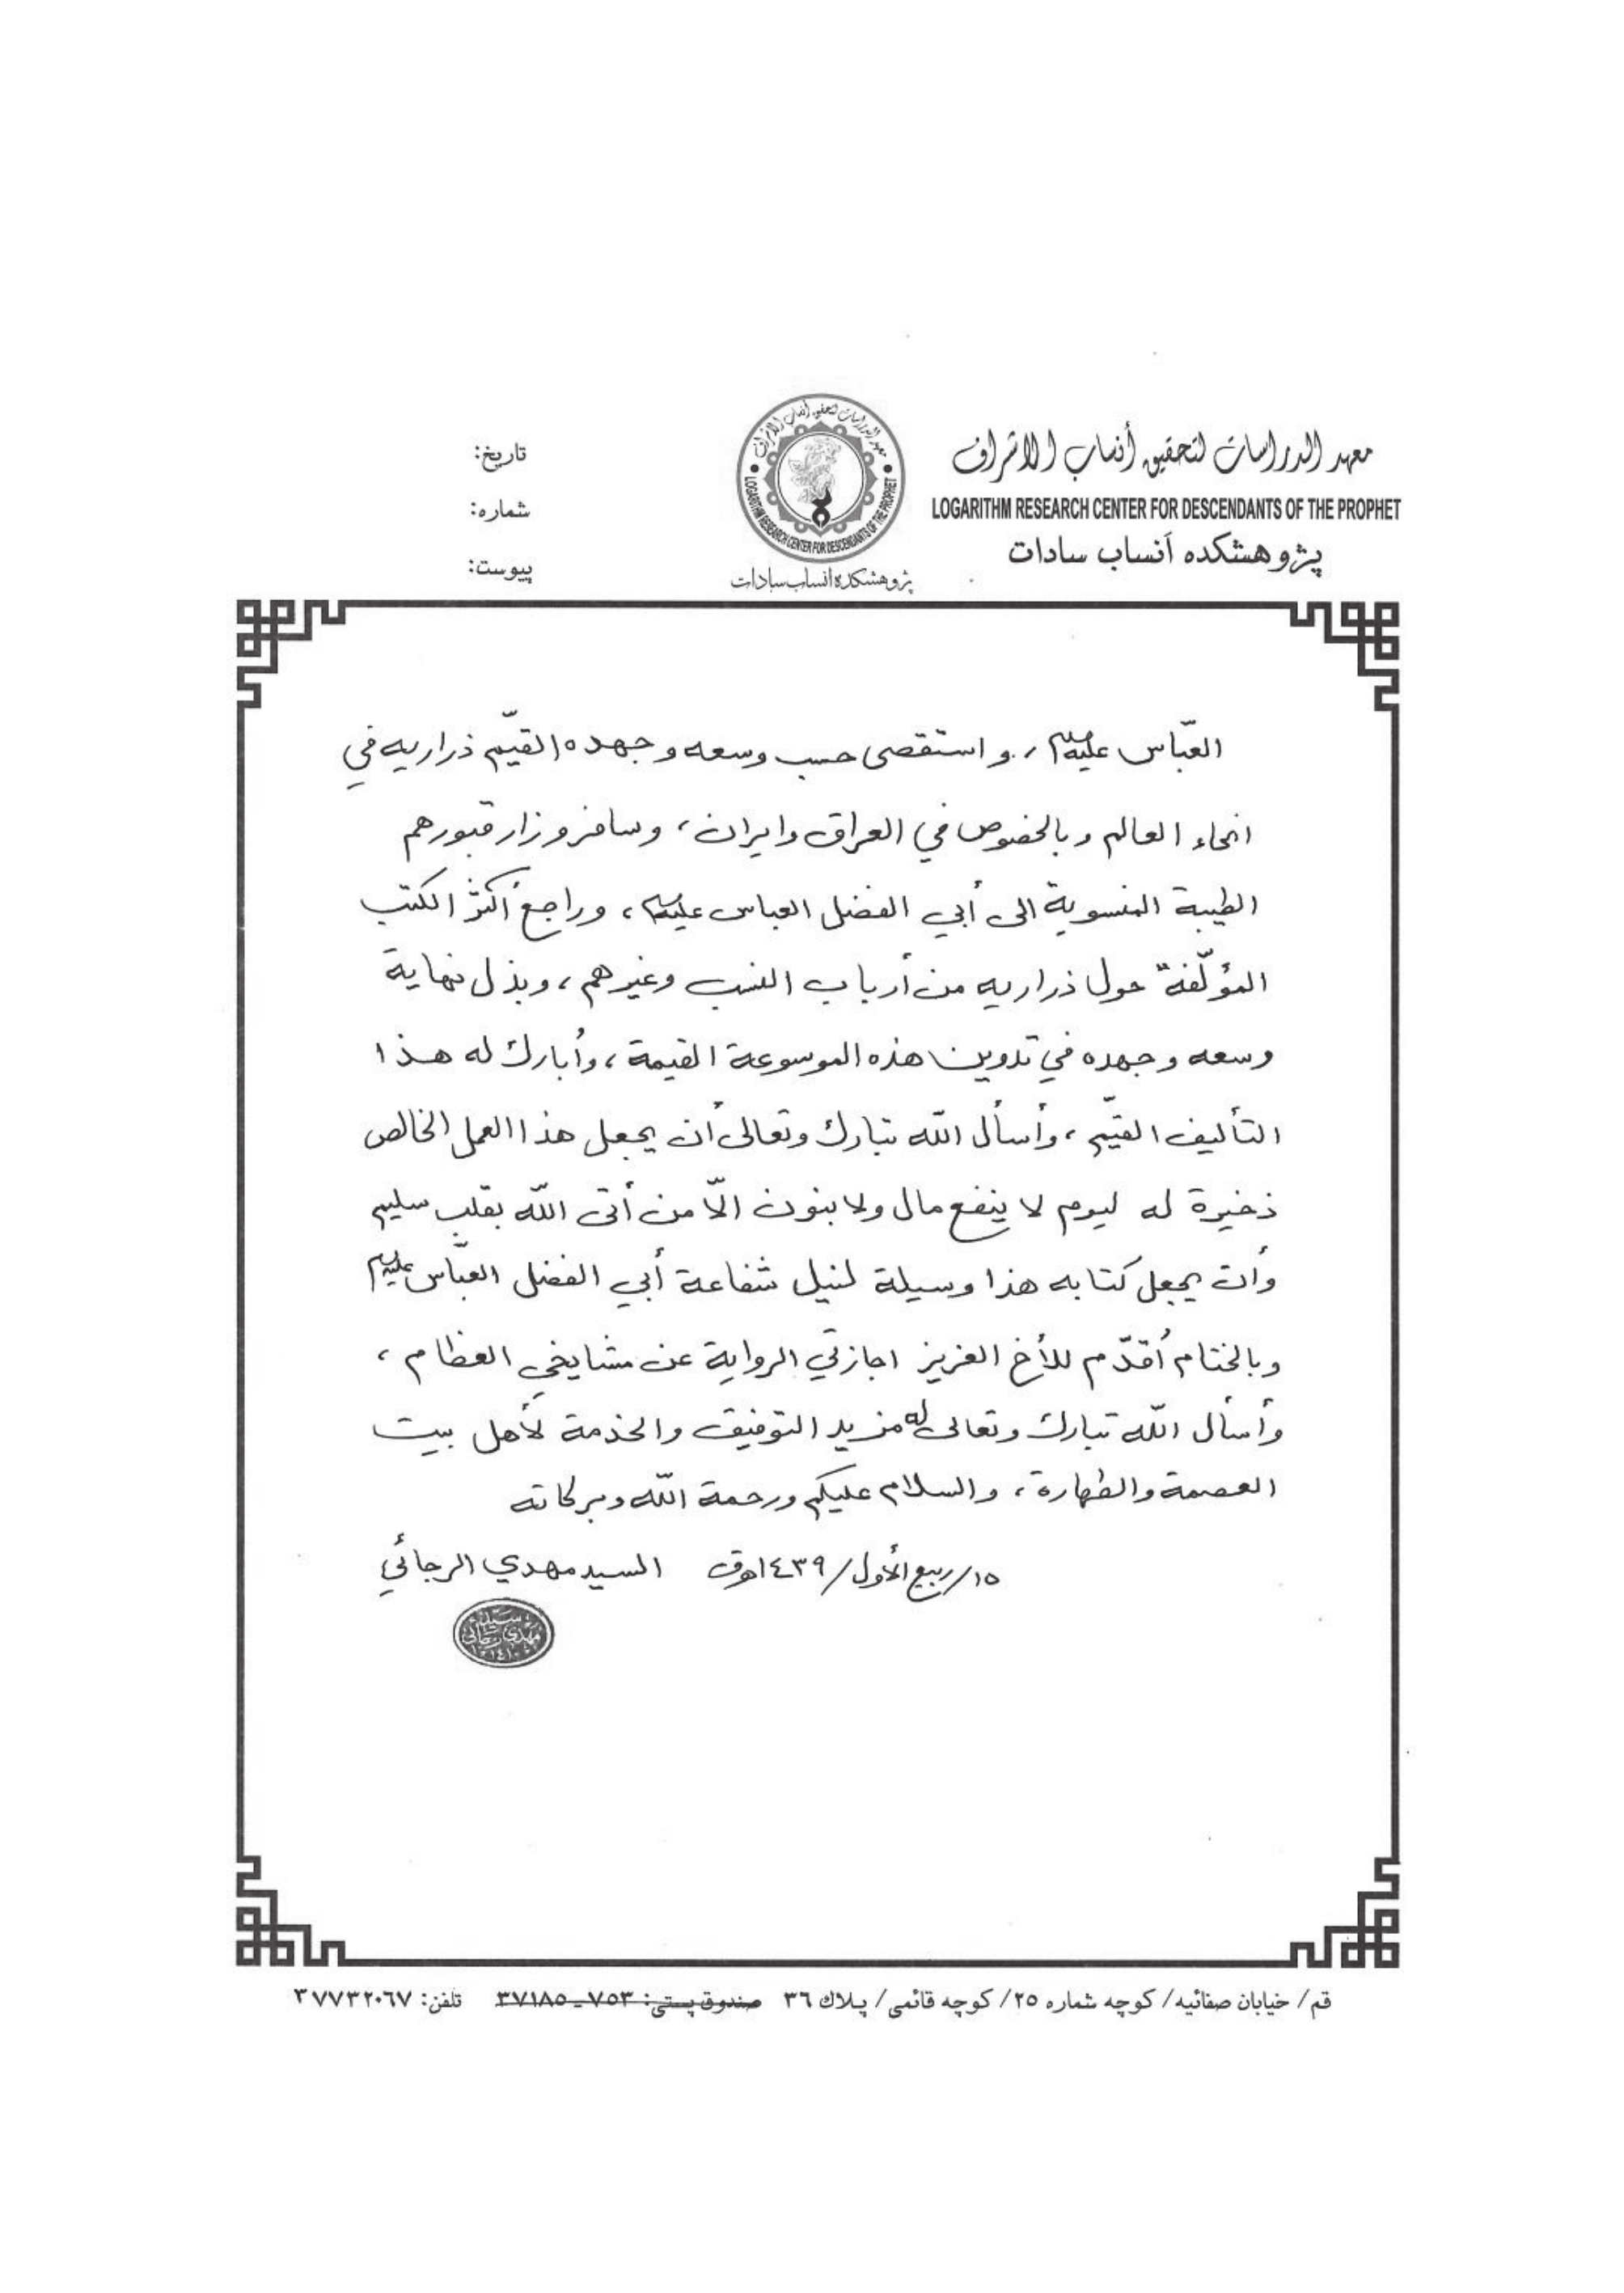 معهد الدراسات لتحقيق أنساب الاشراف
LOGARITHM RESEARCH CENTER FOR DESCENDANTS OF THE PROPHET
پژوهشکده أنساب سادات
معهد الدراسات لتحقيق أنساب الاشراف
LOGARITHM RESEARCH CENTER FOR DESCENDANTS OF THE PROPHET
پژوهشکده انساب سادات
تاریخ:
شماره:
پیوست:
العبّاس عليه السلام، واستقصى حسب وسعه وجهده القيّم ذراريه في
انحاء العالم وبالخصوص في العراق وايران، وسافر وزار قبورهم
الطيبة المنسوبة الى أبي الفضل العباس عليه السلام، وراجع أكثر الكتب
المؤلّفة حول ذراريه من أرباب النسب وغيرهم، وبذل نهاية
وسعه وجهده في تدوين هذه الموسوعة القيمة، وأُبارك له هذا
التأليف القيّم، وأسأل اللّه تبارك وتعالى أن يجعل هذا العمل الخالص
ذخيرة له ليوم لا ينفع مال ولا بنون الّا من أتى اللّه بقلب سليم
وأن يجعل كتابه هذا وسيلة لنيل شفاعة أبي الفضل العبّاس عليه السلام
وبالختام أُقدّم للأخ العزيز اجازتي الرواية عن مشايخي العظام،
وأسأل اللّه تبارك وتعالى له مزيد التوفيق والخدمة لأهل بيت
العصمة والطهارة، والسلام عليكم ورحمة اللّه وبركاته
١٥/ربيع الأول/١٤٣٩هـق السيد مهدي الرجائي
سيد مهدي رجائي ١٤١٠
قم/ خیابان صفائیه/ کوچه شماره ٢٥/ کوچه قائمی/ پلاك ٣٦ صندوق پستی: ٧٥٣-٣٧١٨٥ تلفن: ٣٧٧٣٢٠٦٧